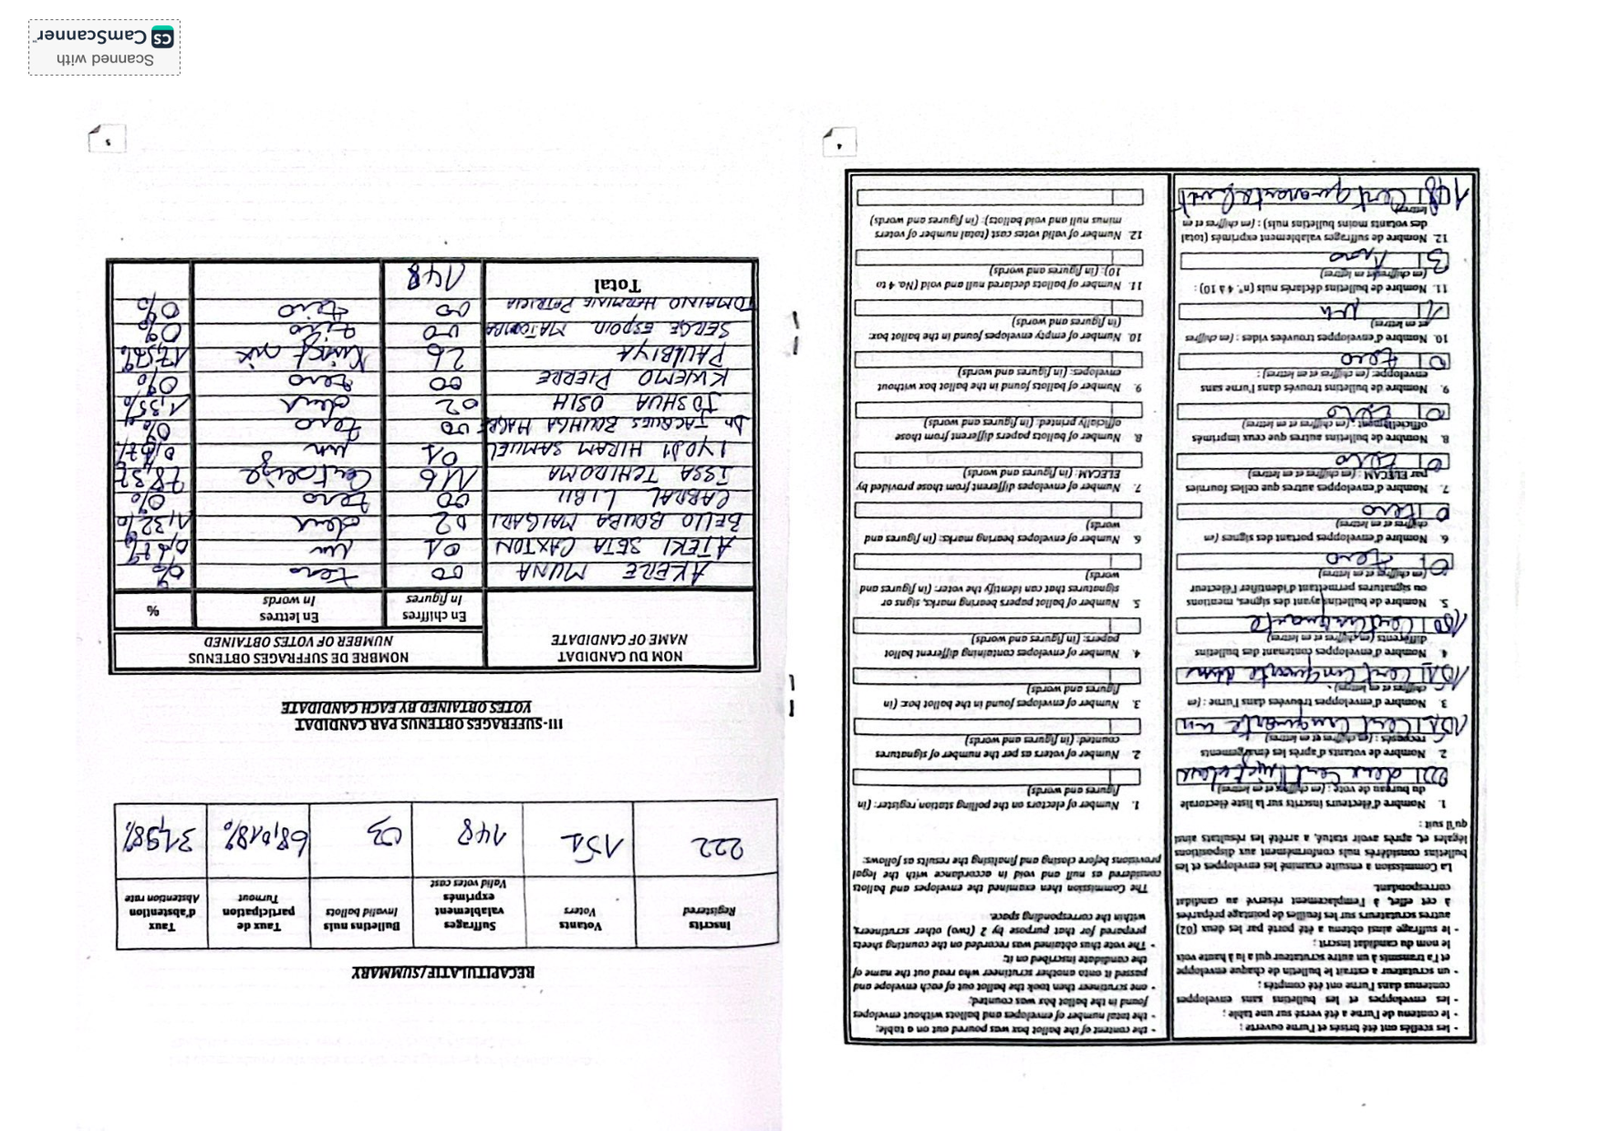 - les scellés ont été brisés et l'urne ouverte ;
- le contenu de l'urne a été versé sur une table ;
- les enveloppes et les bulletins sans enveloppes
contenus dans l'urne ont été comptés ;
- un scrutateur a extrait le bulletin de chaque enveloppe
et l'a transmis à un autre scrutateur qui a lu à haute voix
le nom du candidat inscrit ;
- le suffrage ainsi obtenu a été porté par les deux (02)
autres scrutateurs sur les feuilles de pointage préparées
à cet effet, à l'emplacement réservé au candidat
correspondant.
La Commission a ensuite examiné les enveloppes et les
bulletins considérés nuls conformément aux dispositions
légales et, après avoir statué, a arrêté les résultats ainsi
qu'il suit :
1. Nombre d'électeurs inscrits sur la liste électorale
du bureau de vote : (en chiffres et en lettres)
222 deux cent vingt deux
2. Nombre de votants d'après les émargements
recensés : (en chiffres et en lettres)
151 Cent Cinquante un
3. Nombre d'enveloppes trouvées dans l'urne : (en
chiffres et en lettres)
151 Cent Cinquante
4. Nombre d'enveloppes contenant des bulletins
différents (en chiffres et en lettres)
Cent Cinquante
5. Nombre de bulletins ayant des signes, mentions
ou signatures permettant d'identifier l'électeur
(en chiffres et en lettres)
0 zero
6. Nombre d'enveloppes portant des signes (en
chiffres et en lettres)
0 zero
7. Nombre d'enveloppes autres que celles fournies
par ELECAM : (en chiffres et en lettres)
0 zero
8. Nombre de bulletins autres que ceux imprimés
officiellement : (en chiffres et en lettres)
0 zero
9. Nombre de bulletins trouvés dans l'urne sans
enveloppe: (en chiffres et en lettres) :
0 zero
10. Nombre d'enveloppes trouvées vides : (en chiffres
et en lettres)
1 un
11. Nombre de bulletins déclarés nuls (n° 4 à 10) :
(en chiffres et en lettres)
3
12. Nombre de suffrages valablement exprimés (total
des votants moins bulletins nuls) : (en chiffres et en
lettres)
148 Cent quarante huit
- the content of the ballot box was poured out on a table;
- the total number of envelopes and ballots without envelopes
found in the ballot box was counted;
- one scrutineer then took the ballot out of each envelope and
passed it onto another scrutineer who read out the name of
the candidate inscribed on it;
- The vote thus obtained was recorded on the counting sheets
prepared for that purpose by 2 (two) other scrutineers,
within the corresponding space.
The Commission then examined the envelopes and ballots
considered as null and void in accordance with the legal
provisions before closing and finalising the results as follows:
1. Number of electors on the polling station register: (in
figures and words)
2. Number of voters as per the number of signatures
counted: (in figures and words)
3. Number of envelopes found in the ballot box: (in
figures and words)
4. Number of envelopes containing different ballot
papers: (in figures and words)
5. Number of ballot papers bearing marks, signs or
signatures that can identify the voter: (in figures and
words)
6. Number of envelopes bearing marks: (in figures and
words)
7. Number of envelopes different from those provided by
ELECAM: (in figures and words)
8. Number of ballots papers different from those
officially printed: (in figures and words)
9. Number of ballots found in the ballot box without
envelopes: (in figures and words)
10. Number of empty envelopes found in the ballot box:
(in figures and words)
11. Number of ballots declared null and void (No. 4 to
10): (in figures and words)
12. Number of valid votes cast (total number of voters
minus null and void ballots): (in figures and words)
4
RECAPITULATIF/SUMMARY
Inscrits Registered
Votants Voters
Suffrages valablement exprimés Valid votes cast
Bulletins nuls Invalid ballots
Taux de participation Turnout
Taux d'abstention Abstention rate
222 151 148 03 68,018% 31,98%
III-SUFFRAGES OBTENUS PAR CANDIDAT
VOTES OBTAINED BY EACH CANDIDATE
NOM DU CANDIDAT
NAME OF CANDIDATE
NOMBRE DE SUFFRAGES OBTENUS
NUMBER OF VOTES OBTAINED
En chiffres In figures
En lettres In words
%
AKERE MUNA 00 zero 0%
ATEKI SETA CAXTON 01 un 0,67%
BELLO BOUBA MAIGARI 02 deux 1,32%
CABRAL LIBII 00 zero 0%
ISSA TCHIROMA 116 Cent seize 78,37
IYODI HIRAM SAMUEL 01 un 0,67
Dr JACQUES BOUHGA HAGBE 00 zero 0%
JOSHUA OSIH 02 deux 1,35%
KWEMO PIERRE 00 zero 0%
PAUL BIYA 26 Vingt six 17,57%
SERGE ESPOIR MATOMBA 00 zero 0%
TOMAINO HERMINE PATRICIA 00 zero 0%
Total 148
5
Scanned with
CS CamScanner